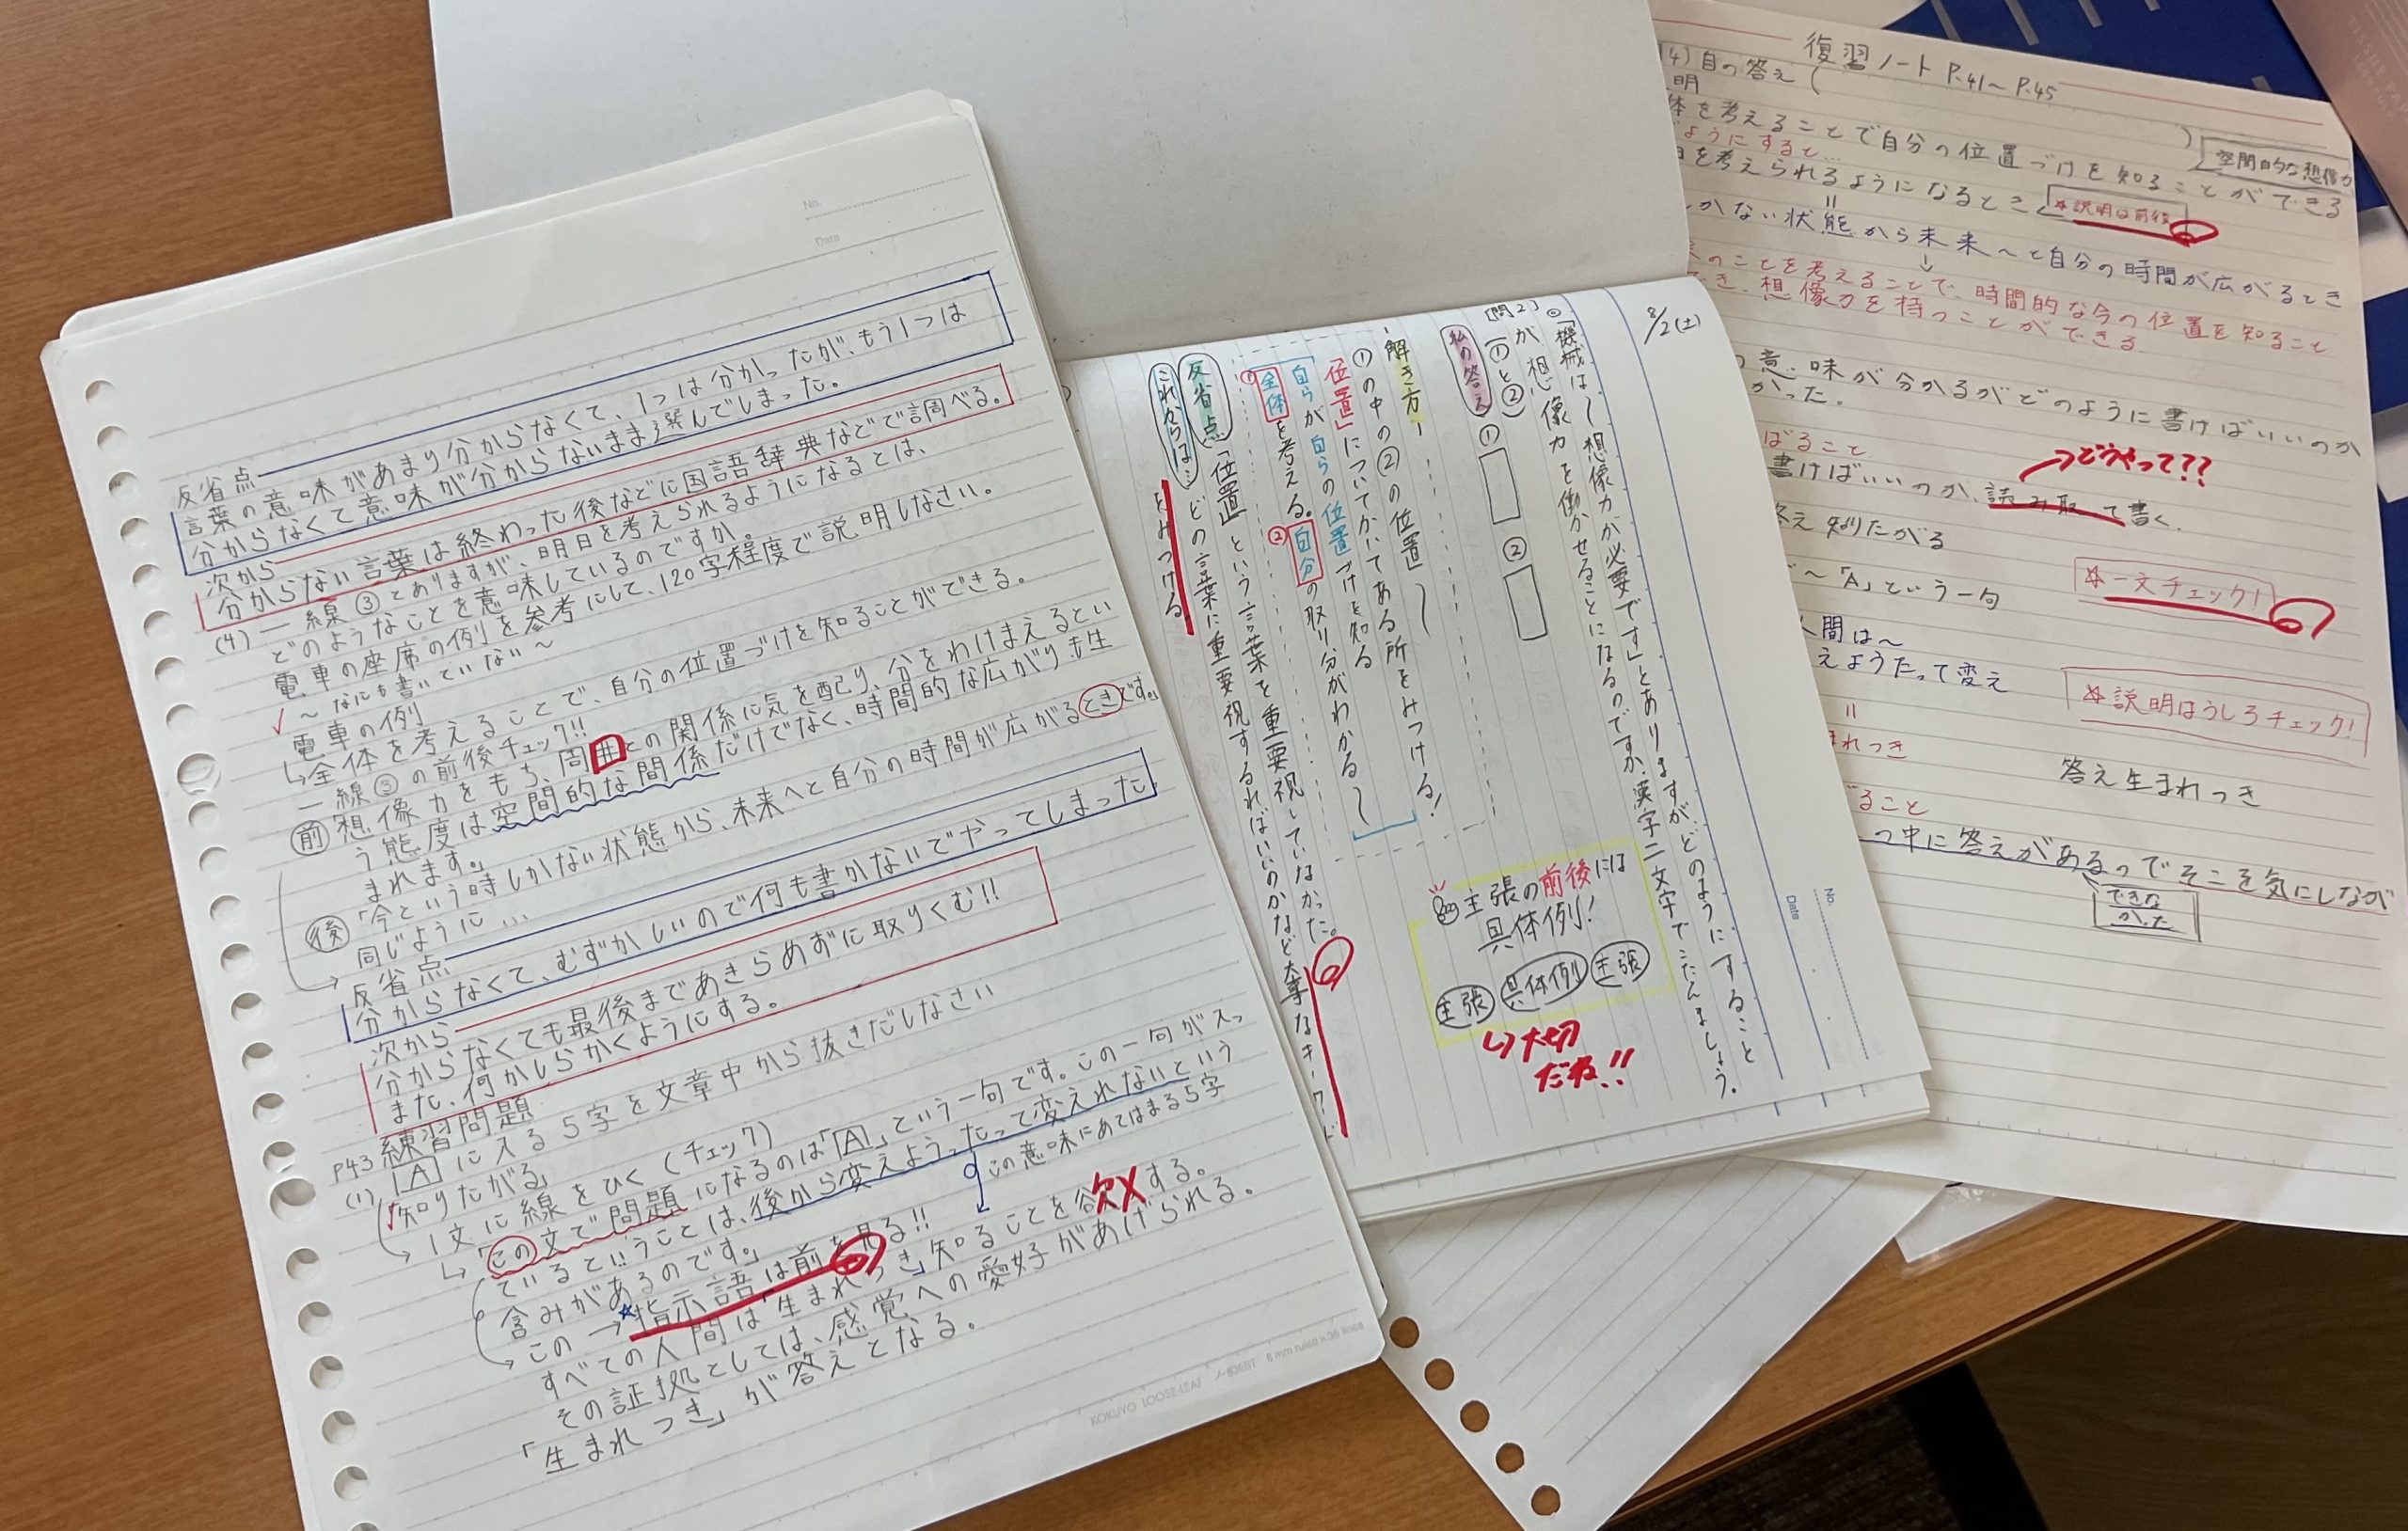 No.
Date
反省点
言葉の意味があまり分からなくて、1つは分かったが、もう1つは
分からなくて意味が分からないまま選んでしまった。
次から
分からない言葉は終わった後などに国語辞典などで調べる。
(4) ―線③とありますが、明日を考えられるようになるとは、
どのようなことを意味しているのですか。
電車の座席の例を参考にして、120字程度で説明しなさい。
～なにも書いていない～
電車の例
↳全体を考えることで、自分の位置づけを知ることができる。
―線③の前後チェック!!
前 想像力をもち、周囲との関係に気を配り、分をわけまえるとい
う態度は空間的な関係だけでなく、時間的な広がりも生
まれます。
後 「今という時しかない状態から、未来へと自分の時間が広がるときです。」
同じように…
反省点
分からなくて、むずかしいので何も書かないでやってしまった
次から
分からなくても最後まであきらめずに取りくむ!!
また、何かしらかくようにする。
P43 練習問題
(1) Aに入る5字を文章中から抜きだしなさい
知りたがる
1文に線をひく(チェック)
↳「この文で問題になるのは「A」という一句です。この一句が入っ
ているということは、後から変えようたって変えれないという
含みがあるのです。」
この意味にあてはまる5字
この→★指示語は前を見る!!
すべての人間は「生まれつき」知ることを欲する。
その証拠としては、感覚への愛好があげられる。
「生まれつき」が答えとなる。
KOKUYO LOOSE-LEAF ノ-836BT 6 mm ruled×36 lines
8/2(土)
No.
Date
◎「機械は～想像力が必要です」とありますがどのようにすること
が想像力を働かせることになるのですか。漢字二文字でこたえましょう。
[問2]
(①と②)
私の答え ① ②
―解き方―
①の中の②の位置
①の中の②の位置についてかいてある所をみつける!
自らが自らの位置づけを知る
①全体を考える。②自分の取り分がわかる
反省点 「位置」という言葉を重要視していなかった。
これからは… どの言葉に重要視すればいいのかなど大事なキーワード
をみつける。
主張の前後には
具体例!
主張 具体例 主張
↳大切
だね!!
復習ノート P.41～P.45
(4)自の答え(
)
体を考えることで自分の位置づけを知ることができる
空間的な想像力
ようにすると…
日を考えられるようになるとき
☆説明は前後
しかない状態から未来～と自分の時間が広がるとき
のことを考えることで、時間的な今の位置を知ること
でき、想像力を持つことができる
意味が分かるがどのように書けばいいのか
かった。
ばること
書けばいいのか、読み取って書く。
→どうやって??
答え 知りたがる
で～「A」という一句
☆一文チェック!
人間は～
えようたって変え
まれつき
☆説明はうしろチェック!
答え生まれつき
ること
つ中に答えがあるのでそこを気にしなが
できな
かった